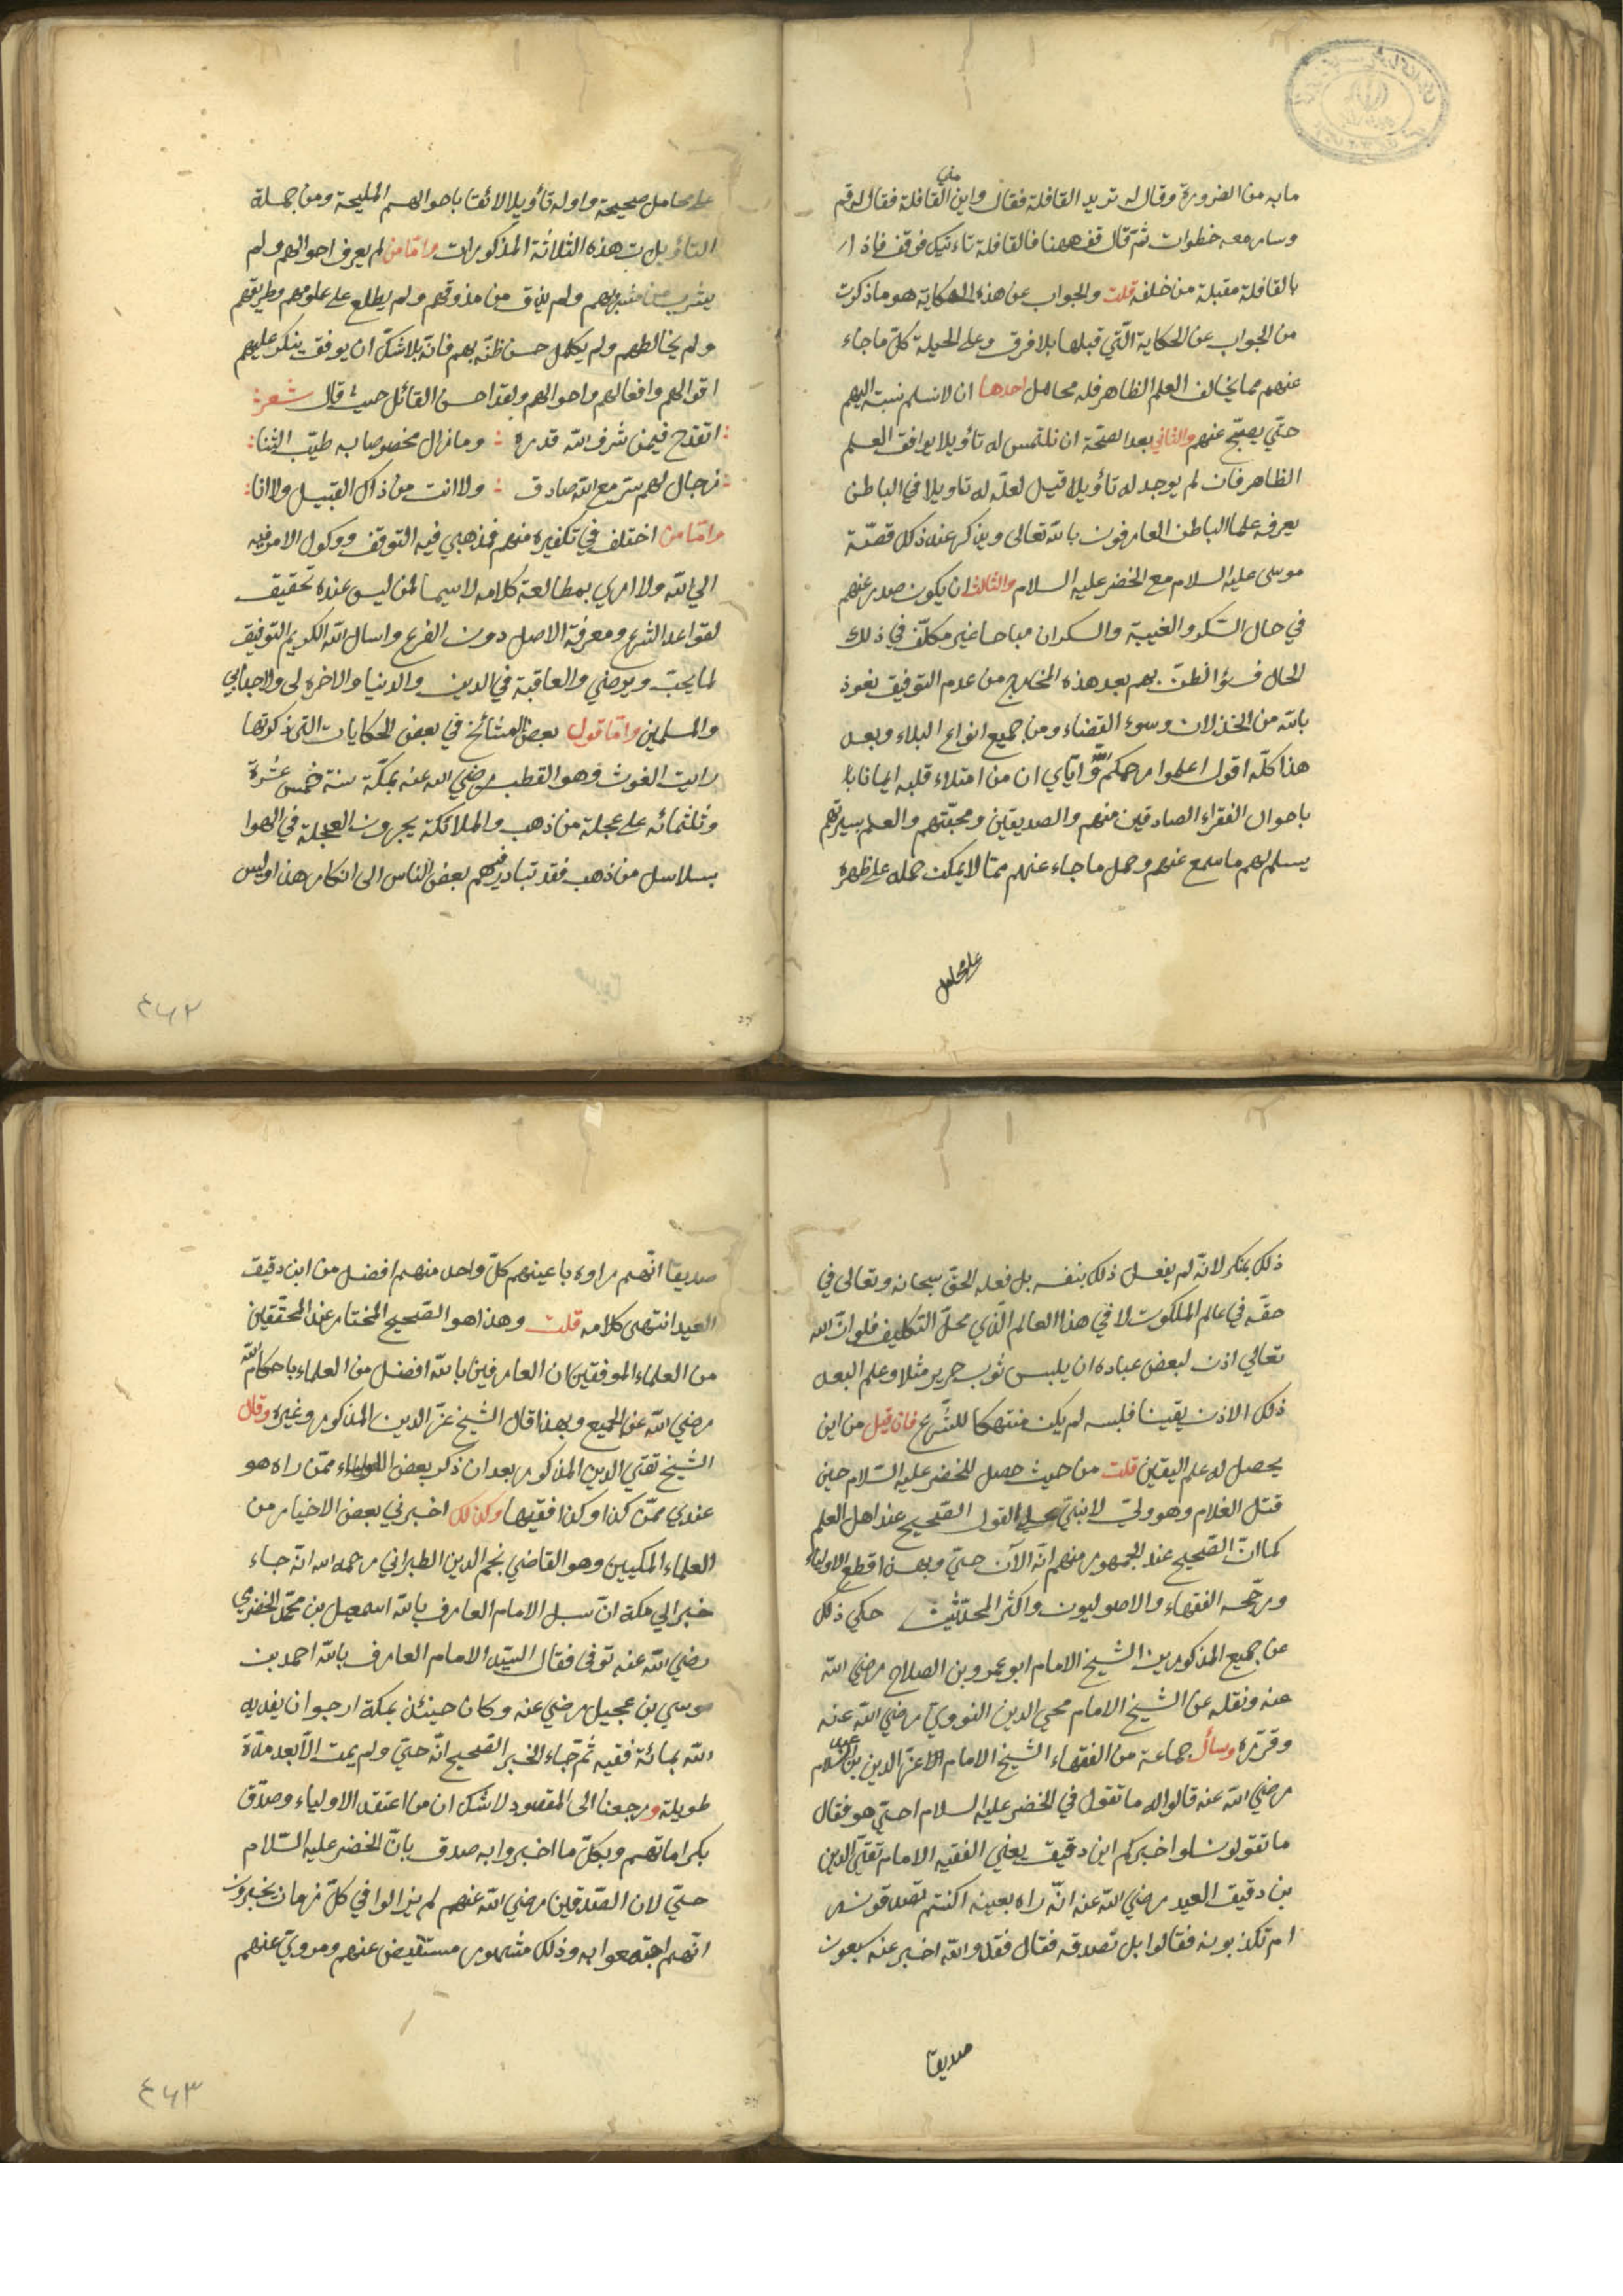 ما به من الضرورة وقال له تريد القافلة فقال واين القافلة فقال له قم
وسار معه خطوات ثم قال قف ههنا فالقافلة تاءتيك فوقف فاذا
بالقافلة مقبلة من خلفه قلت والجواب عن هذه الحكاية هو ما ذكرت
من الجواب عن الحكاية الّتي قبلها بلا فرق وعلى الحيلة كلّ ما جاء
عنهم مما يخالف العلم الظاهر فله محامل احدها ان لا نسلم نسبته اليهم
حتّي يصحّ عنهم والثاني بعد الصحّة ان نلتمس له تأويلا يوافق العلم
الظاهر فان لم يوجد له تأويلا قيل لعلّه له تاويلا في الباطن
يعرفه علما الباطن العارفون بالله تعالى ويذكر عند ذلك قصّة
موسى عليه السلام مع الخضر عليه السلام والثالث ان يكون صدر عنهم
في حال السّكر والغيبة والسكران مباحا غير مكلّف في ذلك
الحال فسؤ الظنّ بهم بعد هذه المخارج من عدم التوفيق نعوذ
بالله من الخذلان وسوء القضاء ومن جميع انواع البلاء وبعد
هذا كلّه اقول اعلموا رحمكم الله وايّاي ان من امتلاء قلبه ايمانا با
باحوال الفقراء الصادقين منهم والصديقين ومحبّتهم والعلم بسيرتهم
يسلم لهم ما سمع عنهم وحمل ما جاء عنهم ممّا لا يمكن حمله على ظهره
على محامل
على محامل صحيحة واوله تأويلا لائقا باحوالهم المليحة ومن جملة
التأويلات هذه الثلاثة المذكورات وامّا من لم يعرف احوالهم ولم
يشرب من مشربهم ولم يذق من مذوقهم ولم يطلع على علومهم وطريقهم
ولم يخالطهم ولم يكمل حسن ظنّه بهم فانّه بلا شكّ ان يوفق ينكر عليهم
اقوالهم وافعالهم واحوالهم ولقد احسن القائل حيث قال شعر
اتقدح فيمن شرف الله قدره وما زال مخصوصا به طيّب الثنا
رجال لهم سرّ مع الله صادق ولا انت من ذاك القبيل ولا انا
وامّا من اختلف في تكفيره منهم فمذهبي فيه التوقف ووكول الامر فيه
الي الله ولا اري بمطالعة كلامه لاسيما لمن ليس عنده تحقيق
لقواعد الشرع ومعرفة الاصل دون الفرع واسال الله الكريم التوفيق
لما يحبّ ويرضي والعاقبة في الدين والدنيا والاخره لى ولاحبابي
والمسلمين وامّا قول بعض المشائخ في بعض الحكايات التي ذكرتها
رايت الغوث وهو القطب رضي الله عنه بمكّة سنة خمس عشرة
وثلثمائه على عجلة من ذهب والملائكة يجرون العجلة في الهوا
بسلاسل من ذهب فقد تبادر فهم بعض الناس الى انكار هذا وليس
٤٦٢
ذلك بمنكر لانّه لم يفعل ذلك بنفسه بل فعله الحقّ سبحانه وتعالى في
حقّه في عالم الملكوت لا في هذا العالم الّذي محلّ التكليف فلو انّ الله
تعالي اذن لبعض عباده ان يلبس ثوب حرير مثلا وعلم العبد
ذلك الاذن يقينا فلبسه لم يكن منتهكا للشّرع فان قيل من اين
يحصل له علم اليقين قلت من حيث حصل للخضر عليه السّلام حين
قتل الغلام وهو وليّ لا نبيّ على القول الصّحيح عند اهل العلم
كما انّ الصّحيح عند الجمهور منهم انّه الآن حيّ وبهذا قطع الاولياء
ورجّحه الفقهاء والاصوليون واكثر المحدّثين حكي ذلك
عن جميع المذكورين الشيخ الامام ابو عمرو بن الصلاح رضي الله
عنه ونقله عن الشيخ الامام محيي الدين النووي رضي الله عنه
وقرّره وسأل جماعة من الفقهاء الشيخ الامام عزّ الدين بن عبد السّلام
رضي الله عنه قالوا له ما تقول في الخضر عليه السلام احيّ هو فقال
ما تقولون لو اخبركم ابن دقيق يعني الفقيه الامام تقيّ الدين
بن دقيق العيد رضي الله عنه انّه راه بعينه اكنتم تصدقونه
ام تكذبونه فقالوا بل نصدقه فقال فقد والله اخبر عنه سبعون
صديقا
صديقا انّهم راوه باعينهم كلّ واحد منهم افضل من ابن دقيق
العيد انتهى كلامه قلت وهذا هو الصّحيح المختار عند المحقّقين
من العلماء الموفقين ان العارفين بالله افضل من العلماء باحكام الله
رضي الله عن الجميع وبهذا قال الشيخ عزّ الدين المذكور وغيره وقال
الشيخ تقيّ الدين المذكور بعد ان ذكر بعض الاولياء ممّن راه هو
عندي ممّن كذا وكذا فقيها وكذلك اخبرني بعض الاخيار من
العلماء المكيين وهو القاضي نجم الدين الطبراني رحمه الله انّه جاء
خبر الي مكة انّ سبل الامام العارف بالله اسمعيل بن محمّد الخضري
رضي الله عنه توفى فقال السيّد الامام العارف بالله احمد بن
موسي بن عجيل رضي عنه وكان حينئذ بمكة ارجو ان يفديه
الله بمائة فقيه ثمّ جاء الخبر الصّحيح انّه حيّ ولم يمت الاّ بعد مدّة
طويلة ورجعنا الى المقصود لا شك ان من اعتقد الاولياء وصدّق
بكراماتهم وبكلّ ما اخبروا به صدق بانّ الخضر عليه السّلام
حيّ لان الصّدقين رضي الله عنهم لم يزالوا في كلّ زمان يخبرون
انّهم اجتمعوا به وذلك مشهور مستفيض عنهم ومرويّ عنهم
٤٦٣